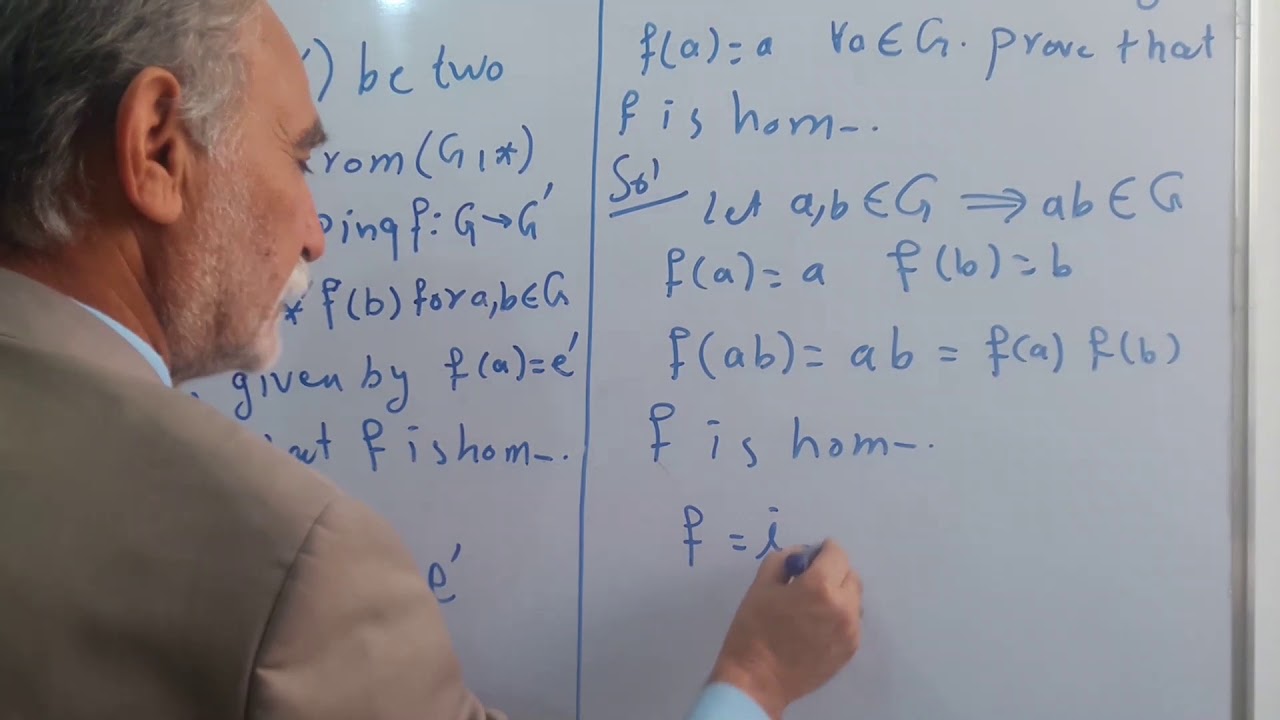 ') be two
rom (G, *)
ping f: G → G'
* f(b) for a, b ∈ G
given by f(a) = e'
f is hom-.
e'
f(a) = a ∀a ∈ G. prove that
f is hom-.
Sol
let a, b ∈ G ⟹ ab ∈ G
f(a) = a f(b) = b
f(ab) = ab = f(a) f(b)
f is hom-.
f = i